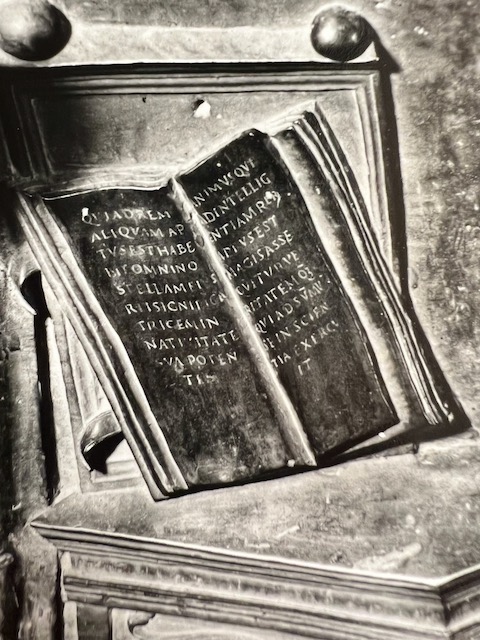 QVIADREM
ALIQVAM AP
TVS EST HABE
BIS OMNINO
STELLAM EI
REI SIGNIFICA
TRICEM IN
NATIVITATE
VA POTEN
TIS
NIMVS QVI
AD INTELLIG
NTIAM
IVS EST
MAGIS ASSE
QVITVR VE
RITATEM Q3
QVI AD
SE IN SCIEN
TIA EXERC
IT